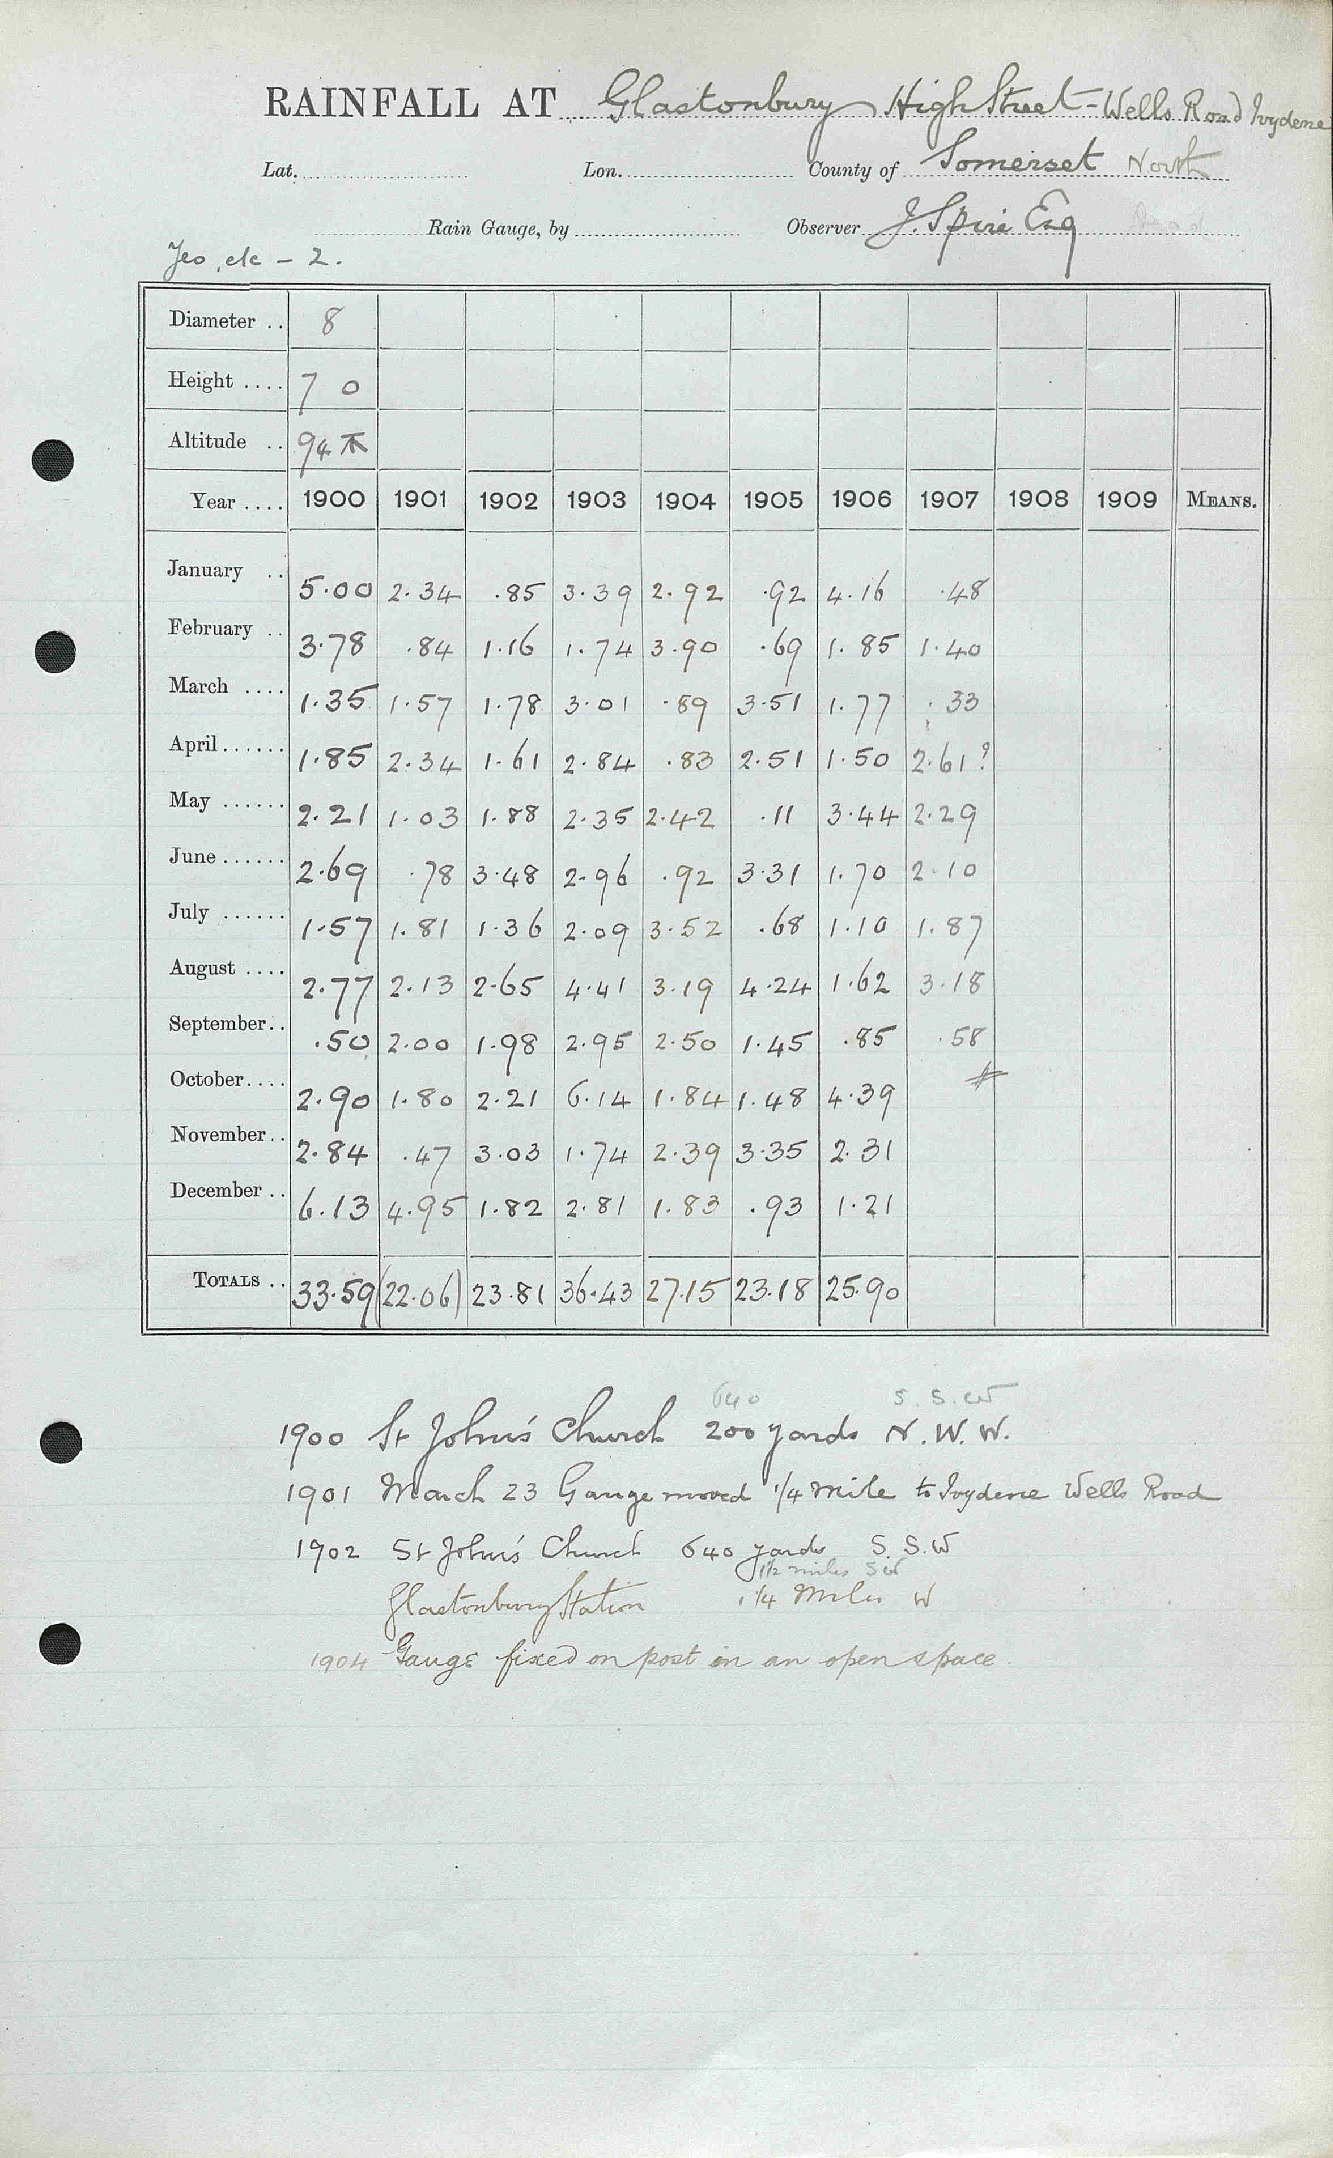 RAINFALL AT Glastonbury High Street - Wells Road Ivydene
Lat. Lon. County of Somerset North
Rain Gauge, by Observer J. Spire Esq
Yeo, etc - 2.
Diameter .. 8
Height .... 7 0
Altitude .. 94
Year .... 1900 1901 1902 1903 1904 1905 1906 1907 1908 1909 MEANS.
January .. 5.00 2.34 .85 3.39 2.92 .92 4.16 .48
February .. 3.78 .84 1.16 1.74 3.90 .69 1.85 1.40
March .... 1.35 1.57 1.78 3.01 .89 3.51 1.77 .33
April...... 1.85 2.34 1.61 2.84 .83 2.51 1.50 2.61?
May ...... 2.21 1.03 1.88 2.35 2.42 .11 3.44 2.29
June...... 2.69 .78 3.48 2.96 .92 3.31 1.70 2.10
July ...... 1.57 1.81 1.36 2.09 3.52 .68 1.10 1.87
August .... 2.77 2.13 2.65 4.41 3.19 4.24 1.62 3.18
September.. .50 2.00 1.98 2.95 2.50 1.45 .85 .58
October.... 2.90 1.80 2.21 6.14 1.84 1.48 4.39
November.. 2.84 .47 3.03 1.74 2.39 3.35 2.31
December .. 6.13 4.95 1.82 2.81 1.83 .93 1.21
TOTALS .. 33.59 (22.06) 23.81 36.43 27.15 23.18 25.90
640 S. S. W
1900 St John's Church 200 yards N. W. W.
1901 March 23 Gauge moved 1/4 mile to Ivydene Wells Road
1902 St John's Church 640 yards S. S. W
1 1/2 miles SW
Glastonbury Station 1 1/4 Miles W
1904 Gauge fixed on post in an open space.